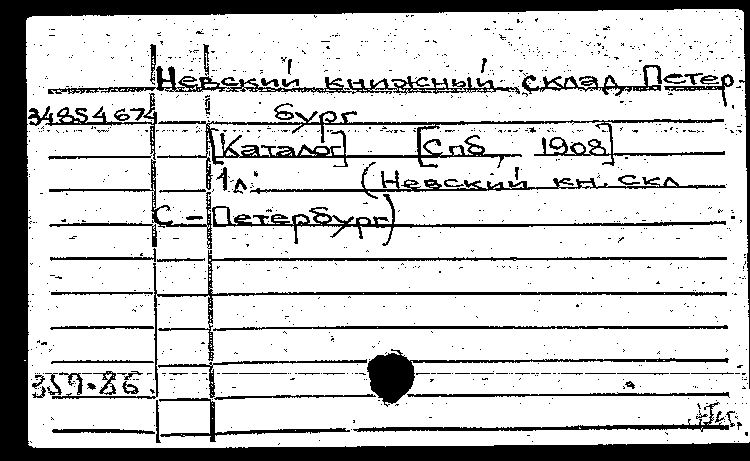 Невский книжный склад, Петер
34854674 бург
[Каталог] [Спб, 1908]
1 л. (Невский кн. скл
С-Петербург)
359.86.